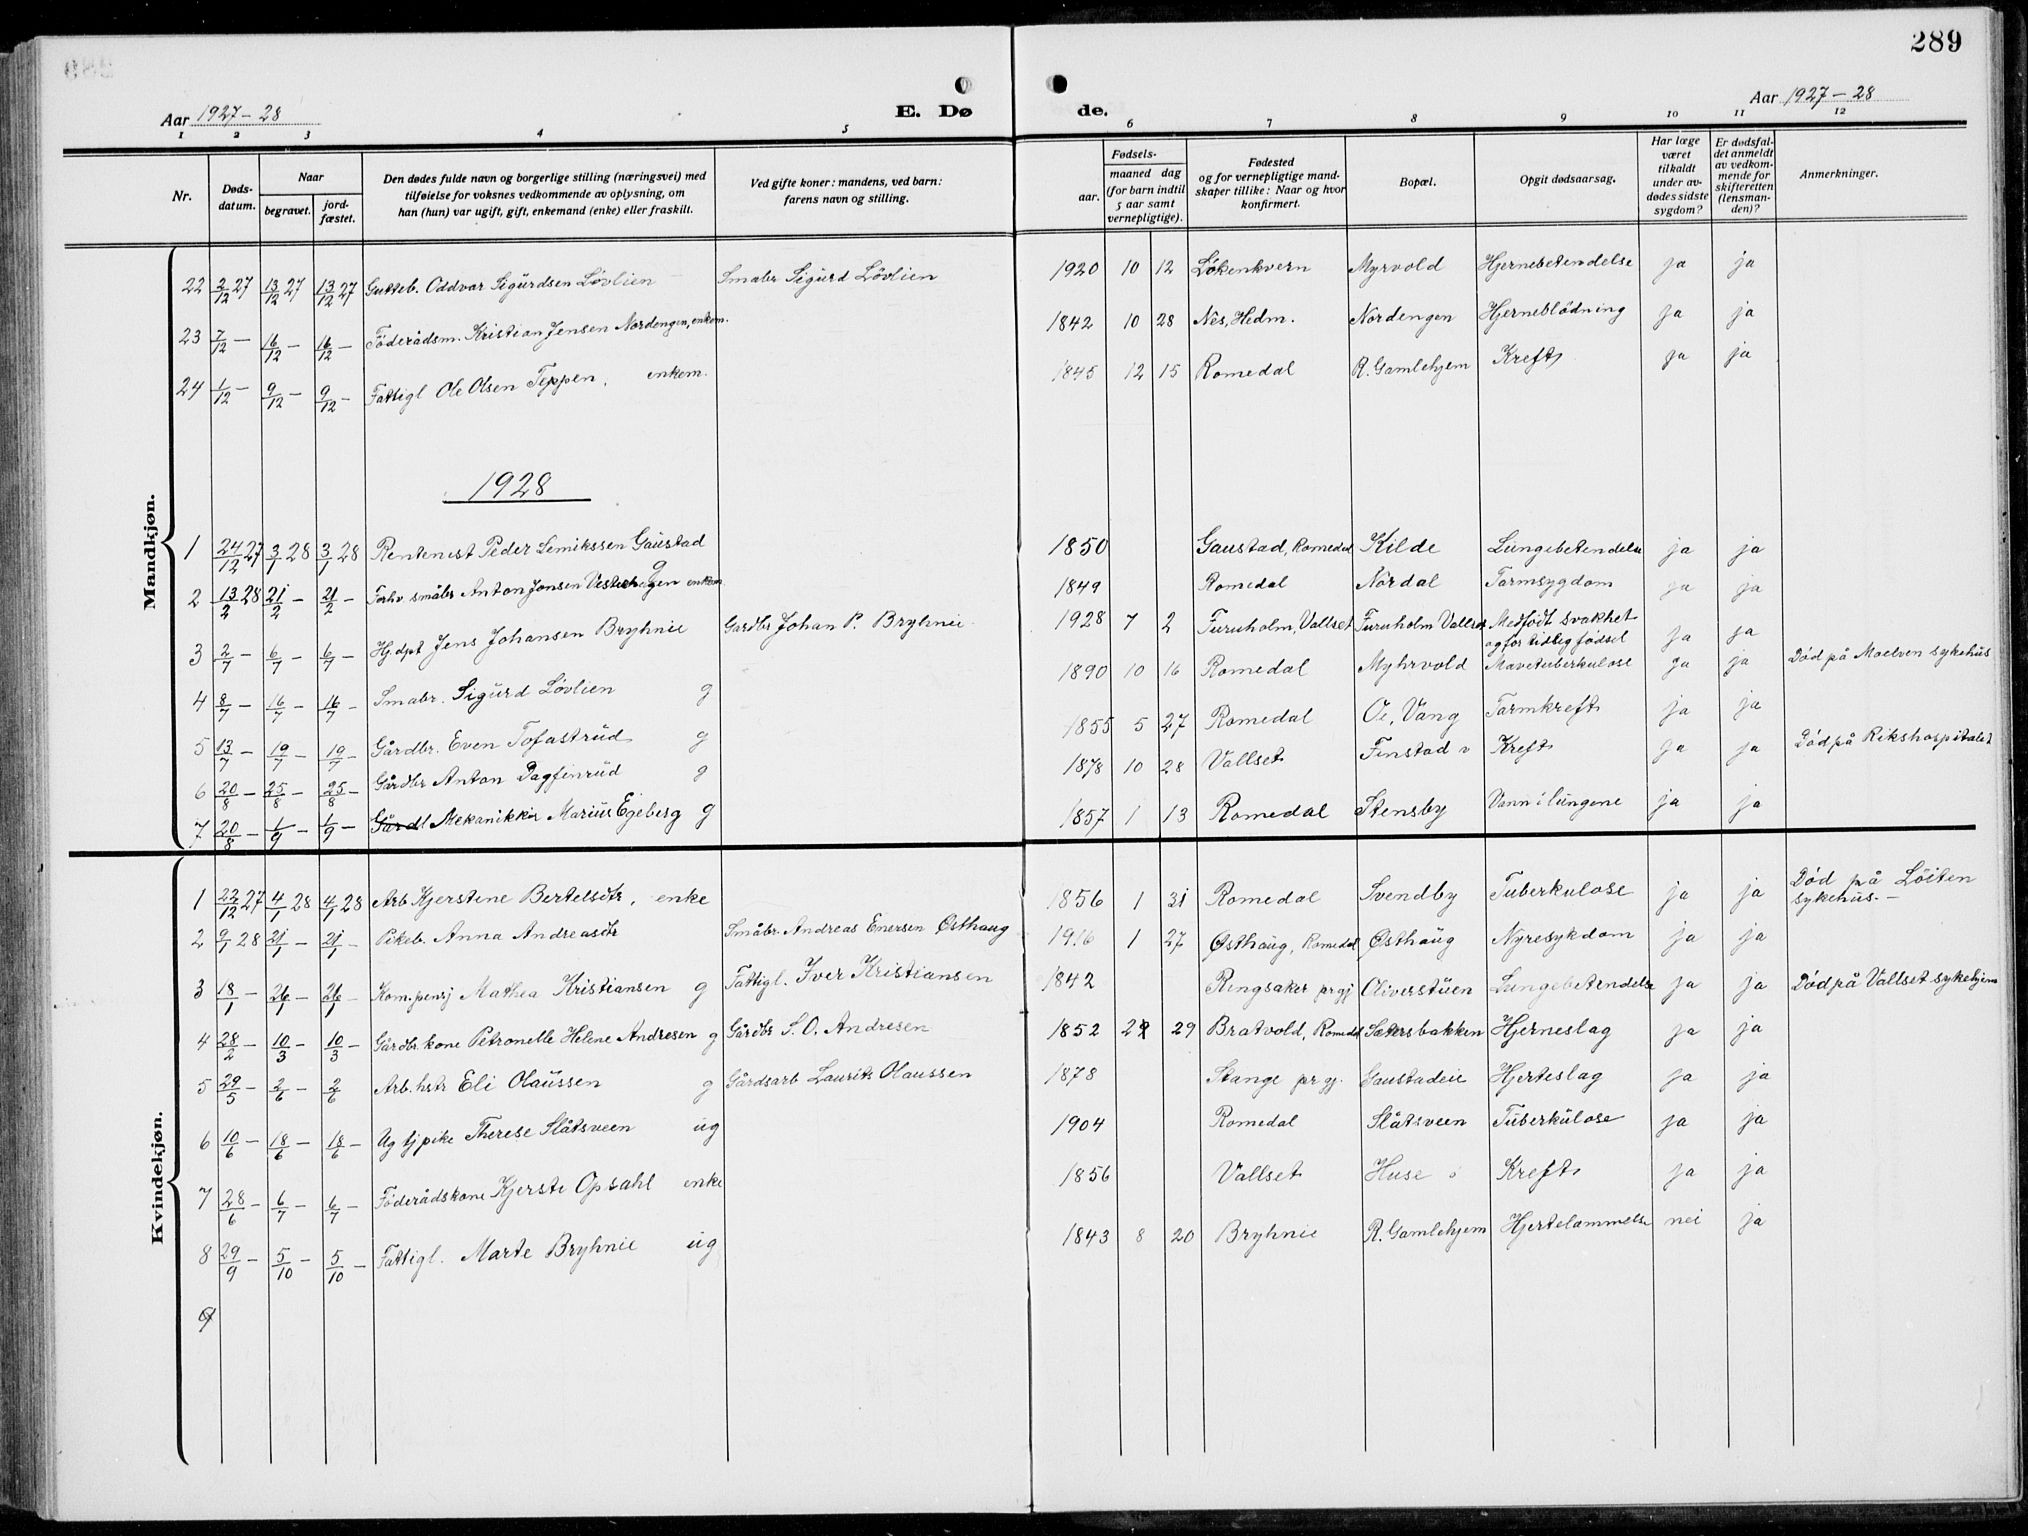 289
Aar 1927-28
E. Dø
de.
Aar 1927-28
1 2 3 4 5 6 7 8 9 10 11 12
Nr.
Døds-
datum.
Naar
begravet.
jord-
fæstet.
Den dødes fulde navn og borgerlige stilling (næringsvei) med
tilføielse for voksnes vedkommende av oplysning, om
han (hun) var ugift, gift, enkemand (enke) eller fraskilt.
Ved gifte koner: mandens, ved barn:
farens navn og stilling.
Fødsels-
aar.
maaned dag
(for barn indtil
5 aar samt
vernepligtige).
Fødested
og for vernepligtige mand-
skaper tillike: Naar og hvor
konfirmert.
Bopæl.
Opgit dødsaarsag.
Har læge
været
tilkaldt
under av-
dødes sidste
sygdom?
Er dødsfal-
det anmeldt
av vedkom-
mende for
skifteretten
(lensman-
den)?
Anmerkninger.
Mandkjøn.
22 2/12 27 13/12 27 13/12 27 Gutteb. Oddvar Sigurdsen Løvlien Småbr Sigurd Løvlien 1920 10 12 Løkenkvern Myrvold Hjernebetendelse ja ja
23 7/12 — 16/12 — 16/12 — Föderådsm. Kristian Jensen Nordengen, enkem. 1842 10 28 Nes, Hedm. Nordengen Hjerneblödning ja ja
24 1/12 — 9/12 — 9/12 — Fattigl Ole Olsen Teppen, enkem. 1845 12 15 Romedal R. Gamlehjem Kreft ja ja
1928
1 24/12 27 3/1 28 3/1 28 Rentenist Peder Lemikssen Gaustad g 1850 Gaustad, Romedal Kilde Lungebetendelse ja ja
2 13/2 28 21/2 — 21/2 — Forhv småbr Anton Jonsen Vestenhagen enkem 1849 Romedal Nordal Tarmsygdom ja ja
3 2/7 — 6/7 — 6/7 — Hj.dpt Jens Johansen Bryhnie Gardbr Johan P. Bryhnie 1928 7 2 Furuholm, Vallset Furuholm Vallset Medfödt svakhet
og for tidlig födsel ja ja
4 8/7 — 16/7 — 16/7 — Småbr. Sigurd Lövlien g 1890 10 16 Romedal Myhrvold Mavetuberkulose ja ja Död på Moelven sykehus
5 13/7 — 19/7 — 19/7 — Gårdbr. Even Tofastrud g 1855 5 27 Romedal Oe, Vang Tarmkreft ja ja
6 20/8 — 25/8 — 25/8 — Gårdbr Anton Dagfinrud g 1878 10 28 Vallset Finstad v Kreft ja ja Död på Rikshospitalet
7 20/8 — 1/9 — 1/9 — Gårdl Mekanikker Marius Egeberg g 1857 1 13 Romedal Stensby Vann i lungene ja ja
Kvindekjøn.
1 22/12 27 4/1 28 4/1 28 Arb Kjerstine Bertelsdtr, enke 1856 1 31 Romedal Svendby Tuberkulose ja ja Död på Löiten
sykehus. —
2 9/1 28 21/1 — 21/1 — Pikeb. Anna Andreasdtr Småbr. Andreas Enersen Østhaug 1916 1 27 Østhaug, Romedal Østhaug Nyresykdom ja ja
3 18/1 — 26/1 — 26/1 — Kom.pensj Mathea Kristiansen g Fattigl. Iver Kristiansen 1842 Ringsaker prgj Oliverstuen Lungebetendelse ja ja Död på Vallset sykehjem
4 28/2 — 10/3 — 10/3 — Gårdbr.kone Petronelle Helene Andresen g Gårdbr S. O. Andresen 1852 2 29 Bratvold, Romedal Sætersbakken Hjerneslag ja ja
5 29/5 — 2/6 — 2/6 Arb.hstr Eli Olaussen g Gårdsarb Laurits Olaussen 1878 Stange pr gj. Gaustadeie Hjerteslag ja ja
6 10/6 — 18/6 — 18/6 — Ug tj pike Therese Slåtsveen ug 1904 Romedal Slåtsveen Tuberkulose ja ja
7 28/6 — 6/7 — 6/7 — Föderådskone Kjersti Opsahl enke 1856 Vallset Huse Kreft ja ja
8 29/9 — 5/10 — 5/10 — Fattigl. Marte Bryhnie ug 1843 8 20 Bryhnie R. Gamlehjem Hjertelammelse nei ja
9